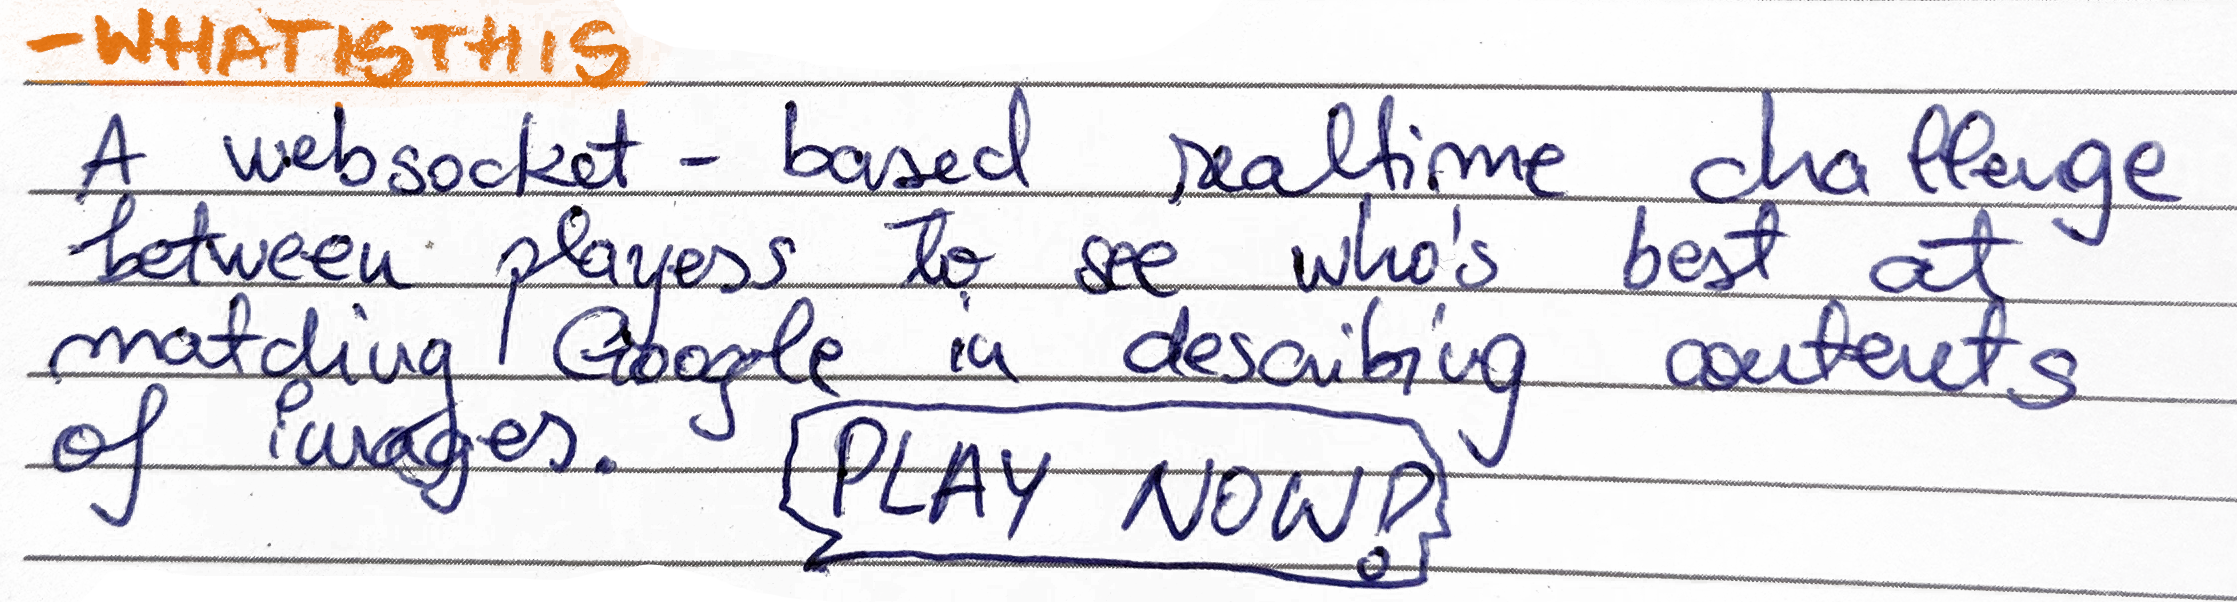 -WHATISTHIS
A websocket-based realtime challenge
between players to see who's best at
matching Google in describing contents
of images.
PLAY NOW!